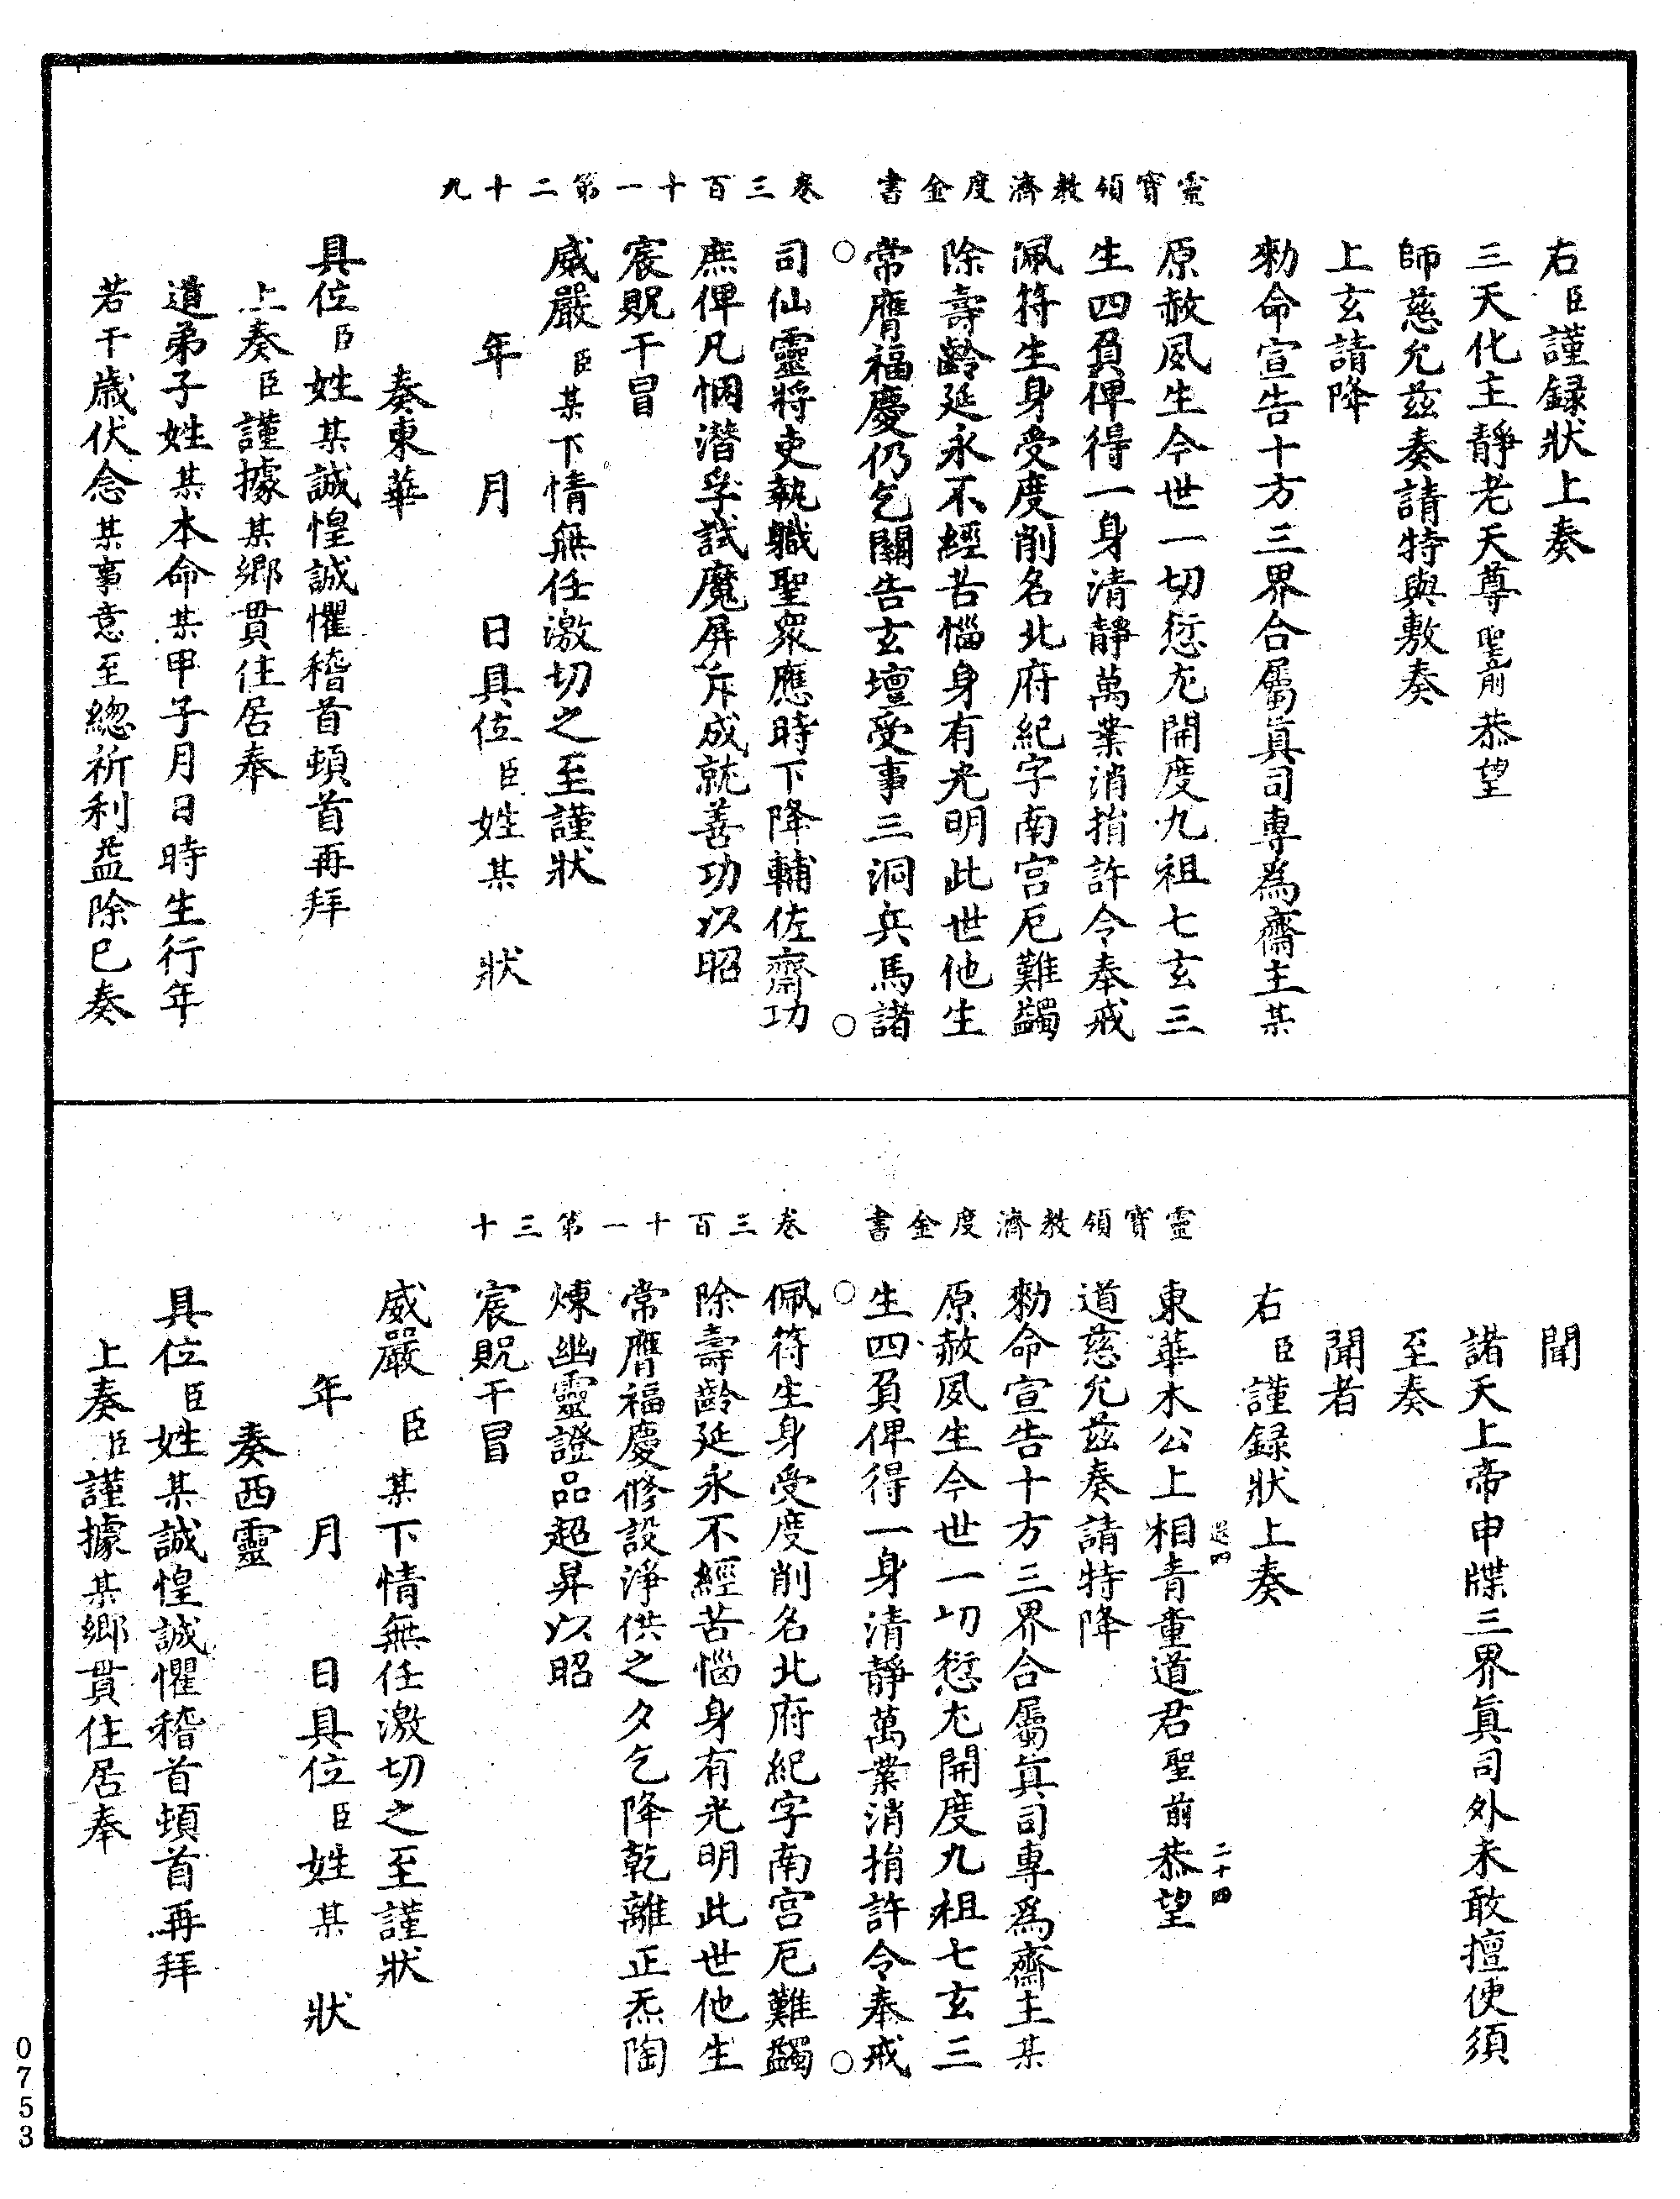 靈寶領教濟度金書　卷三百十一第二十九
右臣謹録狀上奏
三天化主靜老天尊聖前恭望
師慈允兹奏請特與敷奏
上玄請降
勑命宣告十方三界合屬眞司專為齋主某
原赦夙生今世一切愆尤開度九祖七玄三
生四負俾得一身清靜萬業消捐許令奉戒
佩符生身受度削名北府紀字南宫厄難蠲
除壽齡延永不經苦惱身有光明此世他生
常膺福慶仍乞關告玄壇受事三洞兵馬諸
司仙靈將吏執職聖眾應時下降輔佐齋功
庶俾凡悃潛孚試魔屏斥成就善功以昭
宸貺干冒
威嚴臣某下情無任激切之至謹狀
年　月　日具位臣姓某　狀
奏東華
具位臣姓某誠惶誠懼稽首頓首再拜
上奏臣謹據某鄉貫住居奉
道弟子姓某本命某甲子月日時生行年
若干歲伏念某事意至總祈利益除巳奏
靈寶領教濟度金書　卷三百十一第三十
聞
諸天上帝申牒三界眞司外未敢擅便須
至奏
聞者
右臣謹録狀上奏
二十四
東華木公上相青童道君聖前恭望
道慈允兹奏請特降
勑命宣告十方三界合屬眞司專爲齋主某
原赦夙生今世一切愆尤開度九祖七玄三
生四負俾得一身清靜萬業消捐許令奉戒
佩符生身受度削名北府紀字南宫厄難蠲
除壽齡延永不經苦惱身有光明此世他生
常膺福慶修設淨供之夕乞降乾離正炁陶
煉幽靈證品超昇以昭
宸貺干冒
威嚴臣某下情無任激切之至謹狀
年　月　日具位臣姓某　狀
奏西靈
具位臣姓某誠惶誠懼稽首頓首再拜
上奏臣謹據某鄉貫住居奉
0753